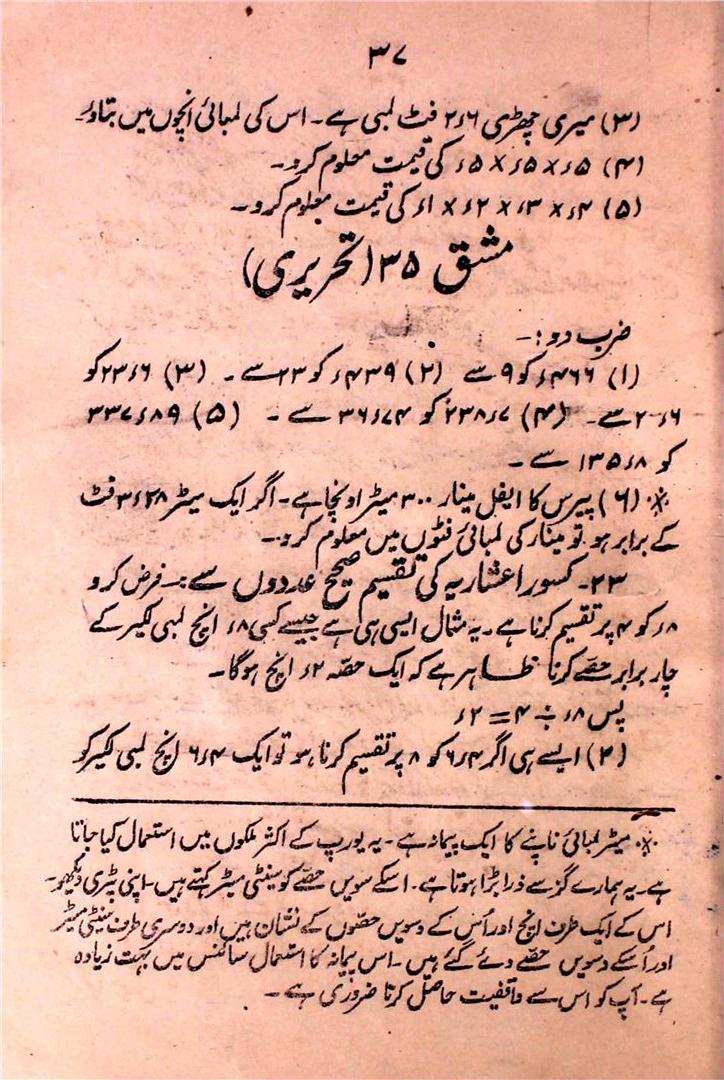 ۳۷
(۳) میری چھڑی ۲ء۶ فٹ لمبی ہے۔ اس کی لمبائی انچوں میں بتاؤ۔
(۴) ء۵ × ء۵ × ء۵ کی قیمت معلوم کرو۔
(۵) ء۴ × ء۳ × ء۲ × ء۱ کی قیمت معلوم کرو۔
مشق ۳۵ (تحریری)
ضرب دو :۔
(۱) ء۴۶۶ کو ۹ سے (۲) ء۴۳۹ کو ۲۳ سے۔ (۳) ۲۳ء۶ کو
۲ء۶ سے۔ (۴) ۲۳۸ء۷ کو ۳۶ء۷۴ سے۔ (۵) ۳۳۷ء۸۹
کو ۱۳۵ء۸ سے۔
※ (۶) پیرس کا ایفل مینار ۳۰۰ میٹر اونچا ہے۔ اگر ایک میٹر ۳ء۲۸ فٹ
کے برابر ہو تو مینار کی لمبائی فٹوں میں معلوم کرو۔
۲۳۔ کسور اعشاریہ کی تقسیم صحیح عددوں سے :۔ فرض کرو
ء۸ کو ۴ پر تقسیم کرنا ہے۔ یہ مثال ایسی ہی ہے جیسے کسی ء۸ انچ لمبی لکیر کے
چار برابر حصے کرنا ظاہر ہے کہ ایک حصہ ء۲ انچ ہوگا۔
پس ء۸ ÷ ۴ = ء۲
(۲) ایسے ہی اگر ۶ء۴ کو ۸ پر تقسیم کرنا ہو تو ایک ۶ء۴ انچ لمبی لکیر کو
※ میٹر لمبائی ناپنے کا ایک پیمانہ ہے۔ یہ یورپ کے اکثر ملکوں میں استعمال کیا جاتا
ہے۔ یہ ہمارے گز سے ذرا بڑا ہوتا ہے۔ اسکے سویں حصے کو سینٹی میٹر کہتے ہیں۔ اپنی پٹری دیکھو۔
اس کے ایک طرف انچ اور اُس کے دسویں حصوں کے نشان ہیں اور دوسری طرف سینٹی میٹر
اور اُسکے دسویں حصے دئے گئے ہیں۔ اس پیمانہ کا استعمال سائنس میں بہت زیادہ
ہے۔ آپ کو اس سے واقفیت حاصل کرنا ضروری ہے۔